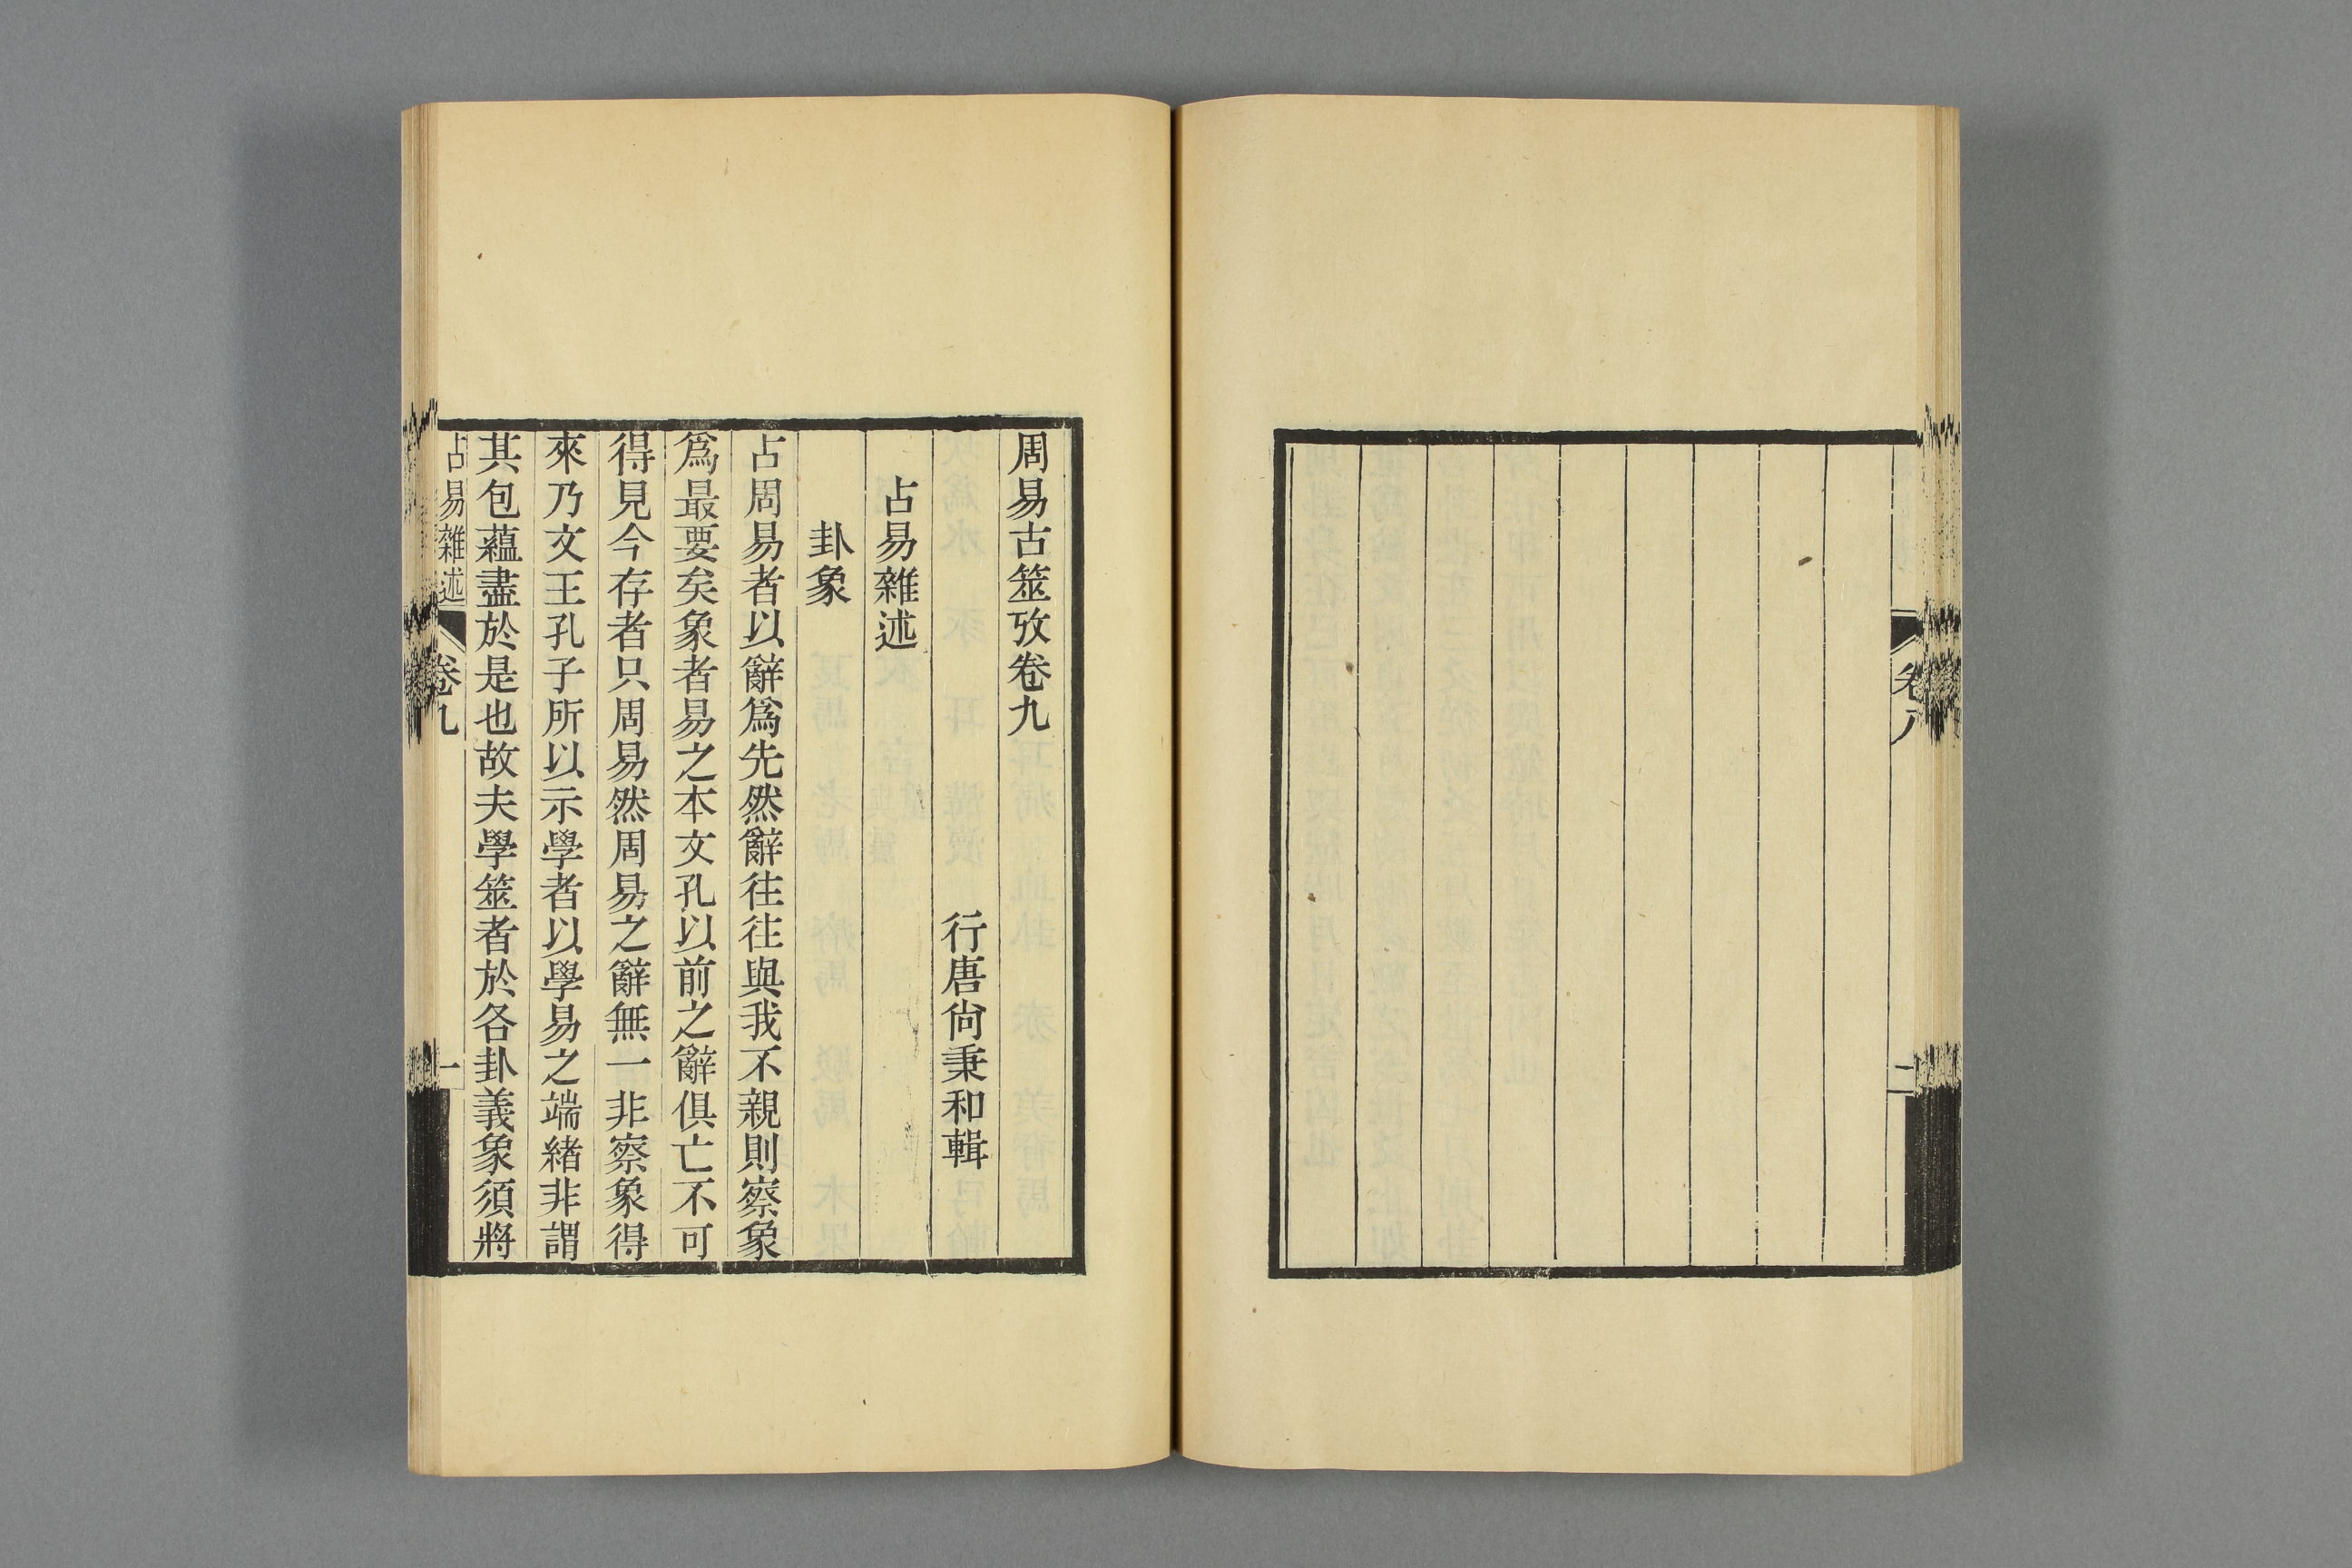 卷八
二
周易古筮攷卷九
行唐尙秉和輯
占易雜述
卦象
占周易者以辭爲先然辭往往與我不親則察象
爲最要矣象者易之本文孔以前之辭俱亡不可
得見今存者只周易然周易之辭無一非察象得
來乃文王孔子所以示學者以學易之端緖非謂
其包蘊盡於是也故夫學筮者於各卦義象須將
占易雜述
卷九
一